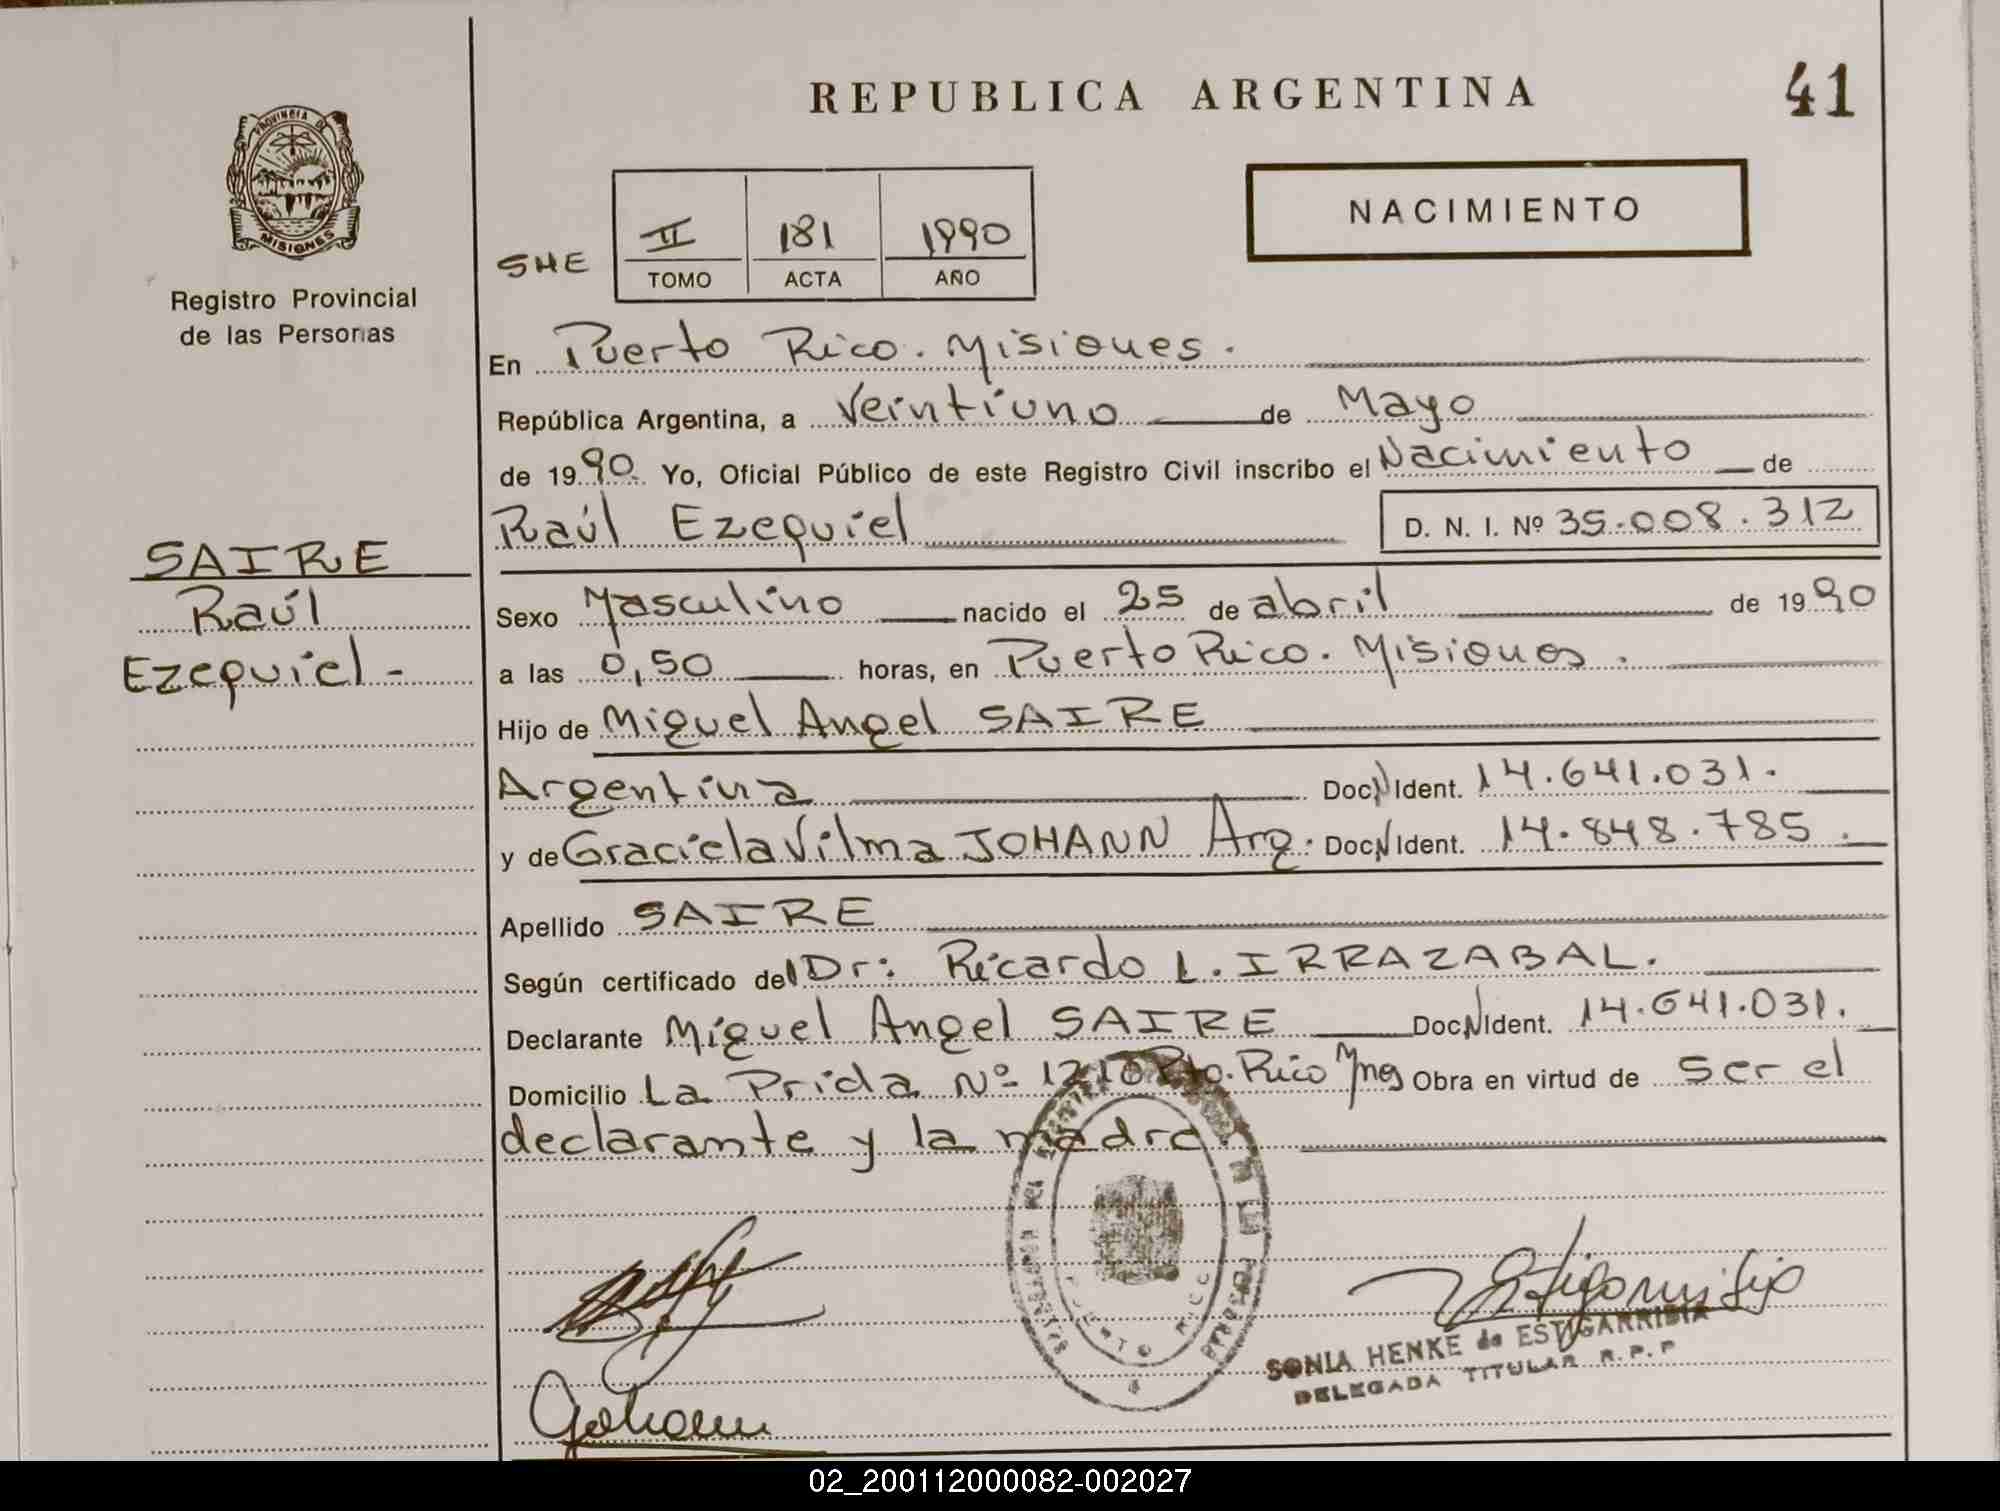 REPUBLICA ARGENTINA
41
PROVINCIA DE
MISIONES
Registro Provincial
de las Personas
NACIMIENTO
SHE
II 181 1990
TOMO ACTA AÑO
En Puerto Rico. Misiones.
República Argentina, a Veintiuno de Mayo
de 1990. Yo, Oficial Público de este Registro Civil inscribo el Nacimiento de
Raúl Ezequiel D. N. I. Nº 35.008.312
SAIRE
Raúl
Ezequiel -
Sexo Masculino nacido el 25 de abril de 1990
a las 0,50 horas, en Puerto Rico. Misiones.
Hijo de Miguel Angel SAIRE
Argentina Doc N Ident. 14.641.031.
y de Graciela Vilma JOHANN Arg. Doc N Ident. 14.848.785.
Apellido SAIRE
Según certificado del Dr: Ricardo L. IRRAZABAL.
Declarante Miguel Angel SAIRE Doc N Ident. 14.641.031.
Domicilio La Prida Nº 1210 Pto. Rico Mnes Obra en virtud de ser el
declarante y la madre.
PUERTO RICO
SONIA HENKE de ESTIGARRIBIA
DELEGADA TITULAR R. P. P
02_200112000082-002027